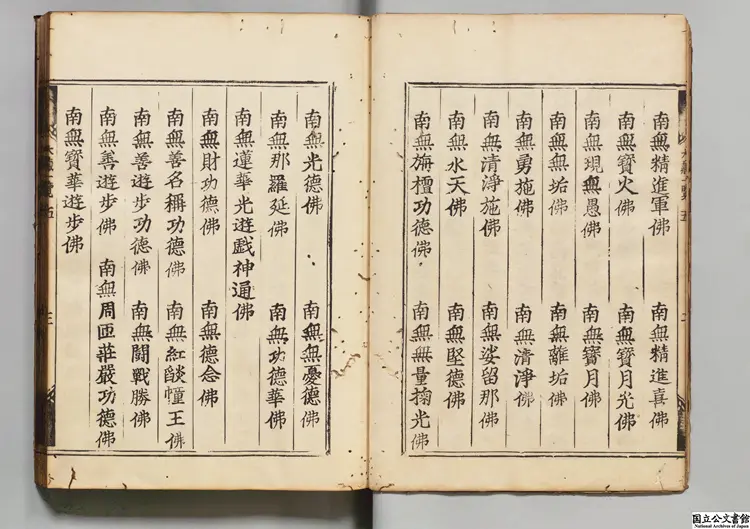 南無精進軍佛　南無精進喜佛
南無寶火佛　南無寶月光佛
南無現無愚佛　南無寶月佛
南無無垢佛　南無離垢佛
南無勇施佛　南無清淨佛
南無清淨施佛　南無娑留那佛
南無水天佛　南無堅德佛
南無旃檀功德佛　南無無量掬光佛
南無光德佛　南無無憂德佛
南無那羅延佛　南無功德華佛
南無蓮華光遊戲神通佛
南無財功德佛　南無德念佛
南無善名稱功德佛　南無紅燄幢王佛
南無善遊步功德佛　南無鬪戰勝佛
南無善遊步佛　南無周匝莊嚴功德佛
南無寶華遊步佛
国立公文書館
National Archives of Japan